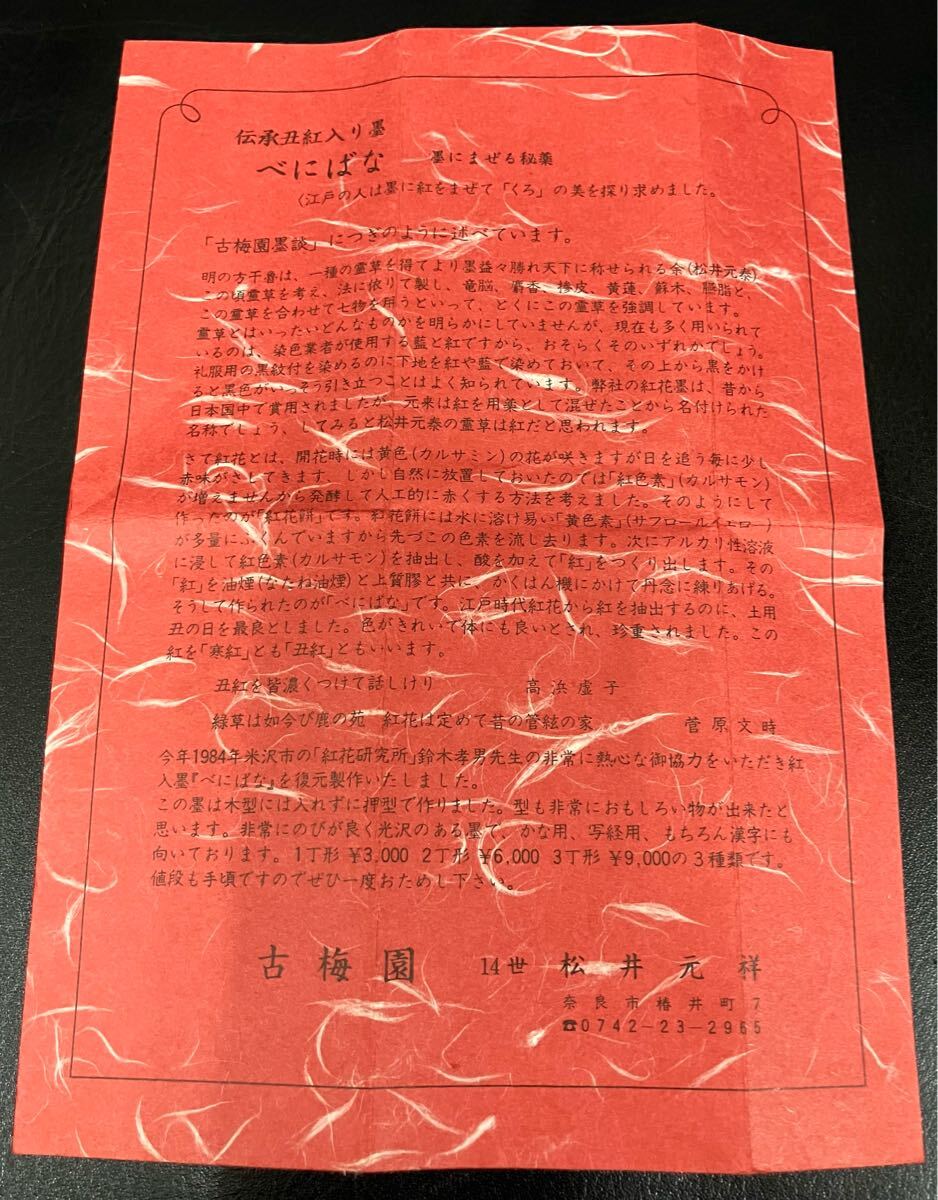 伝承丑紅入り墨
べにばな 墨にまぜる秘薬
〈江戸の人は墨に紅をまぜて「くろ」の美を探り求めました。
「古梅園墨談」につぎのように述べています。
明の方干魯は、一種の霊草を得てより墨益々勝れ天下に称せられる余(松井元泰)
この頃霊草を考え、法に依りて製し、竜脳、麝香、㯽皮、黄蓮、蘇木、臙脂と、
この霊草を合わせて七物を用うといって、とくにこの霊草を強調しています。
霊草とはいったいどんなものかを明らかにしていませんが、現在も多く用いられて
いるのは、染色業者が使用する藍と紅ですから、おそらくそのいずれかでしょう。
礼服用の黒紋付を染めるのに下地を紅や藍で染めておいて、その上から黒をかけ
ると黒色がいっそう引き立つことはよく知られています。弊社の紅花墨は、昔から
日本国中で賞用されましたが、元来は紅を用薬として混ぜたことから名付けられた
名称でしょう、してみると松井元泰の霊草は紅だと思われます。
さて紅花とは、開花時には黄色(カルサミン)の花が咲きますが日を追う毎に少し
赤味がさしてきます。しかし自然に放置しておいたのでは「紅色素」(カルサモン)
が増えませんから発酵して人工的に赤くする方法を考えました。そのようにして
作ったのが「紅花餅」です。紅花餅には水に溶け易い「黄色素」(サフロールイエロー)
が多量にふくんでいますから先づこの色素を流し去ります。次にアルカリ性溶液
に浸して紅色素(カルサモン)を抽出し、酸を加えて「紅」をつくり出します。その
「紅」を油煙(なたね油煙)と上質膠と共に、かくはん機にかけて丹念に練りあげる。
そうして作られたのが「べにばな」です。江戸時代紅花から紅を抽出するのに、土用
丑の日を最良としました。色がきれいで体にも良いとされ、珍重されました。この
紅を「寒紅」とも「丑紅」ともいいます。
丑紅を皆濃くつけて話しけり 高浜虚子
緑草は如今び鹿の苑 紅花は定めて昔の管絃の家 菅原文時
今年1984年米沢市の「紅花研究所」鈴木孝男先生の非常に熱心な御協力をいただき紅
入墨『べにばな』を復元製作いたしました。
この墨は木型には入れずに押型で作りました。型も非常におもしろい物が出来たと
思います。非常にのびが良く光沢のある墨で、かな用、写経用、もちろん漢字にも
向いております。1丁形 ¥3,000 2丁形 ¥6,000 3丁形 ¥9,000の3種類です。
値段も手頃ですのでぜひ一度おためし下さい。
古梅園 14世 松井元祥
奈良市椿井町7
☎0742-23-2965